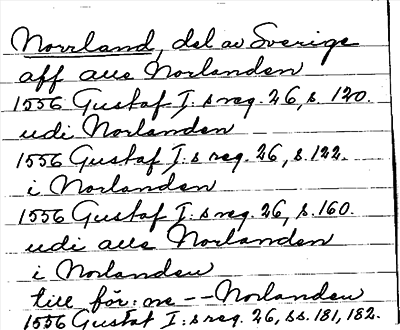 Norrland, del av Sverige
aff alle Norlanden
1556 Gustaf I:s reg. 26, s. 120.
udi Norlanden
1556 Gustaf I:s reg. 26, s. 122.
i Norlanden
1556 Gustaf I:s reg. 26, s. 160.
udi alle Norlanden
i Norlanden
till för:ne -- Norlanden
1556 Gustaf I:s reg. 26, ss. 181, 182.